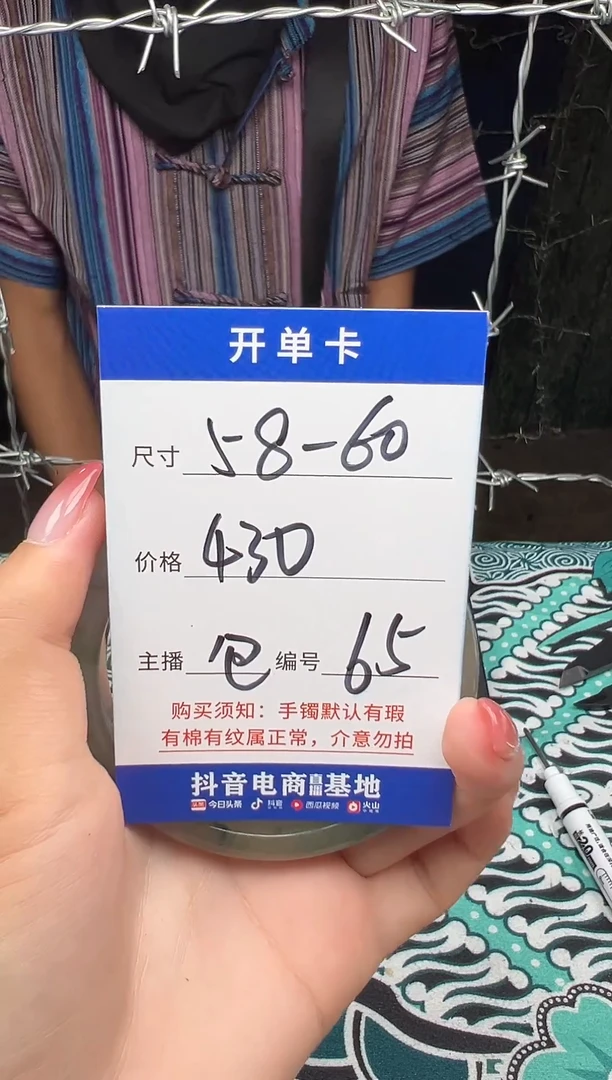 开单卡
尺寸 58-60
价格 430
主播 包 编号 65
购买须知：手镯默认有瑕
有棉有纹属正常，介意勿拍
抖音电商直播基地
今日头条 抖音 西瓜视频 火山
2.0